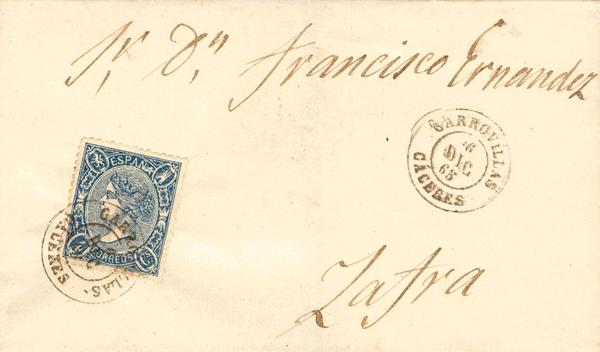 Sr. Dn. Francisco Ernandez
GARROVILLAS
6
DIC
65
CACERES
ESPAÑA
CORREOS
CACERES
Zafra